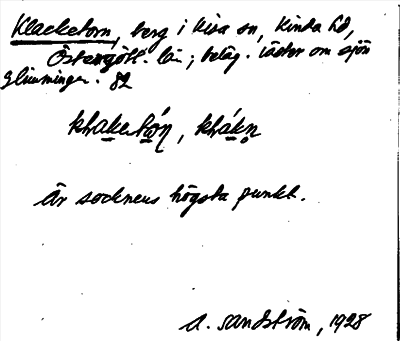 Klacketorn, berg i Kisa sn, Kinda hd,
Östergötl. län; beläg. öster om sjön
Glimmingen. 82
khaketórn, khákn
Är socknens högsta punkt.
A. Sandström, 1928